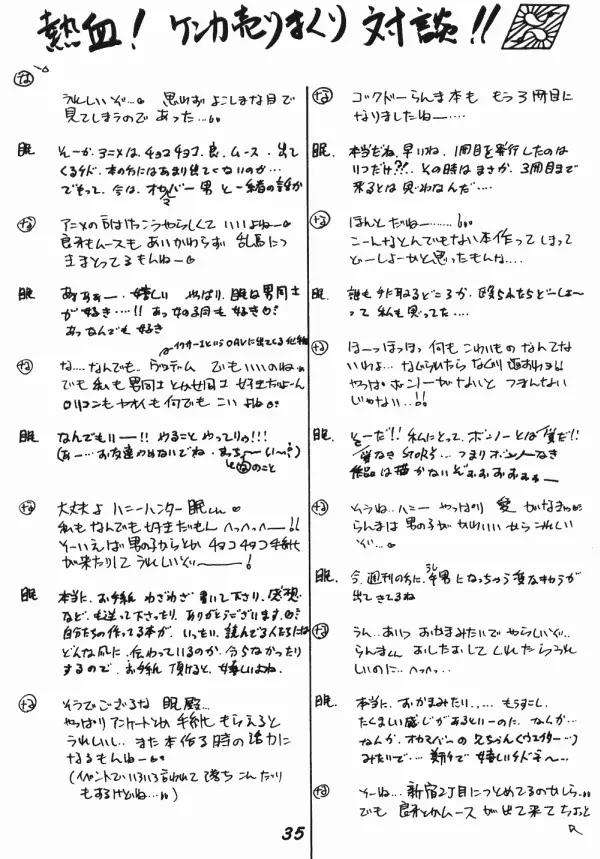 熱血! ケンカ売りまくり 対談!!
な ゴクドーらんま本も もう3冊目に
なりましたねー‥‥
眠. 本当だね、早いね、1冊目を発行したのは
いつだっけ?!. その時は まさか、3冊目まで
来るとは 思わなんだ‥‥
な ほんとだねー‥‥‥‥
こーんなとんでもない本作って しまって
どーしよーかと思ったもんな‥‥
眠. 誰も 手取るどころか、殴られたらどーしよ〜
って 私も 思ってた‥‥
な ほーっほっほっ 何も こわいもの なんてな
いわよ… なぐられたら なぐり返すわよ!!
やっぱ ボンノーがないと つまんない
じゃない‥!!
眠. そーだ!! 私にとって、ボンノーとは愛だ!!
愛なき STORY‥、つまりボンノーなき
作品は描かないぞぉぉぉぉぉぉー
な そうね‥ハニー やっぱり 愛 がなきゃか
らんまは 男の子が かわいいから うれしい
ぞ‥。
眠. 今、週刊の方に、牛男になっちゃう変なキャラが
出てきてるね
な うん‥あいつ おかまみたいで やらしいぞ‥
らんまくん おしたおして くれたらうれ
しいのに‥ へへっ‥
眠. 本当に、おかまみたい‥‥ もうすこし、
たくましい感じがあるといーのに、なんか‥
なんか、オカマバーの 兄ちゃん(ウエイター‥)
みたいで‥‥ 期待で嬉しいけど〜‥
な そーね‥新宿2丁目につとめてるのかしら‥
でも 良牙とかムースが出て来てちょっと
な うれしいぞ‥。 思わず よこしまな目で
見てしまうので あった‥‥
眠 そーか、アニメは、チョコチョコ、良、ムース 出て
くるけど、本の方にはあまり出てこないのか‥
でもって、今は、オカマバー男と一緒の話か
な アニメの方はけっこうやらしくて いいよねー。
良牙もムースも あいかわらず 乱馬につ
きまとってるもんねー。
眠 あぁぁー・嬉しい やっぱり、眠は男同士
が好き‥‥!! あっ 女の子同士も好き!
あっ なんでも 好き
な な‥‥なんでも。 でもいいのね。
でも 私も 男同士とか女同士 好きだよーん
ロリコンも ヤオイも何でも こいよね。
眠 なんでもいー!! やること やってりゃ!!!
な 大丈夫よ ハニーハンター 眠くん
私もなんでも好きだもん へっへっへー!!
そーいえば 男の子からとか チョコチョコ手紙
が来たりして うれしいぞ ー!
眠 本当に、お手紙 わざわざ 書いて下さり、感想
なども送って下さったり、ありがとうございます。
自分たちの作ってる本が、いったい、読んでる人たちにね
どんな風に、伝わっているのか、分らなかったり
するので、お手紙 頂けると、嬉しいよね。
な そうでござるな 眠殿‥
やっぱりアンケートとか 手紙 もらえると
うれしいし‥ また 本 作る時の活力に
なるもんねー。
(イベントでいろいろ言われて 落ちこんだり
もするけどね‥‥)
35